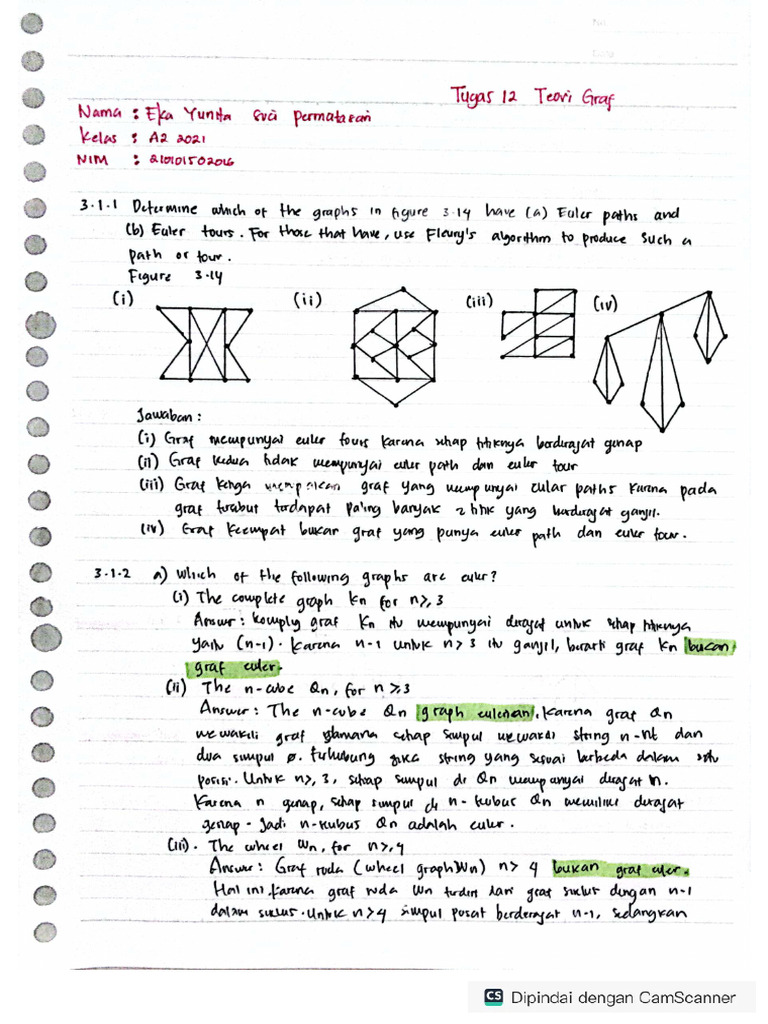 No.
Date
Tugas 12 Teori Graf
Nama : Eka Yunita Suci Permatasari
Kelas : A2 2021
NIM : 210101502016
3.1.1 Determine which of the graphs in figure 3.14 have (a) Euler paths and
(b) Euler tours. For those that have, use Fleury's algorithm to produce such a
path or tour.
Figure 3.14
(i) (ii) (iii) (iv)
Jawaban :
(i) Graf mempunyai euler tours karena setiap titiknya berderajat genap
(ii) Graf kedua tidak mempunyai euler path dan euler tour
(iii) Graf ketiga merupakan graf yang mempunyai eular paths karena pada
graf tersebut terdapat paling banyak 2 titik yang berderajat ganjil.
(iv) Graf keempat bukan graf yang punya euler path dan euler tour.
3.1.2 a) Which of the following graphs are euler?
(i) The complete graph Kn for n≥3
Answer : komply graf Kn itu mempunyai derajat untuk setiap titiknya
yaitu (n-1). Karena n-1 untuk n≥3 itu ganjil, berarti graf Kn bukan
graf euler.
(ii) The n-cube Qn, for n≥3
Answer : The n-cube Qn graph eulerian, karena graf Qn
mewakili graf dimana setiap simpul mewakili string n-bit dan
dua simpul terhubung jika string yang sesuai berbeda dalam satu
posisi. Untuk n≥3, setiap simpul di Qn mempunyai derajat n.
Karena n genap, setiap simpul di n-kubus Qn memiliki derajat
genap. Jadi n-kubus Qn adalah euler.
(iii). The wheel Wn, for n≥4
Answer : Graf roda (wheel graph Wn) n≥4 bukan graf euler.
Hal ini karena graf roda Wn terdiri dari graf siklus dengan n-1
dalam siklus. Untuk n≥4 simpul pusat berderajat n-1, sedangkan
CS Dipindai dengan CamScanner